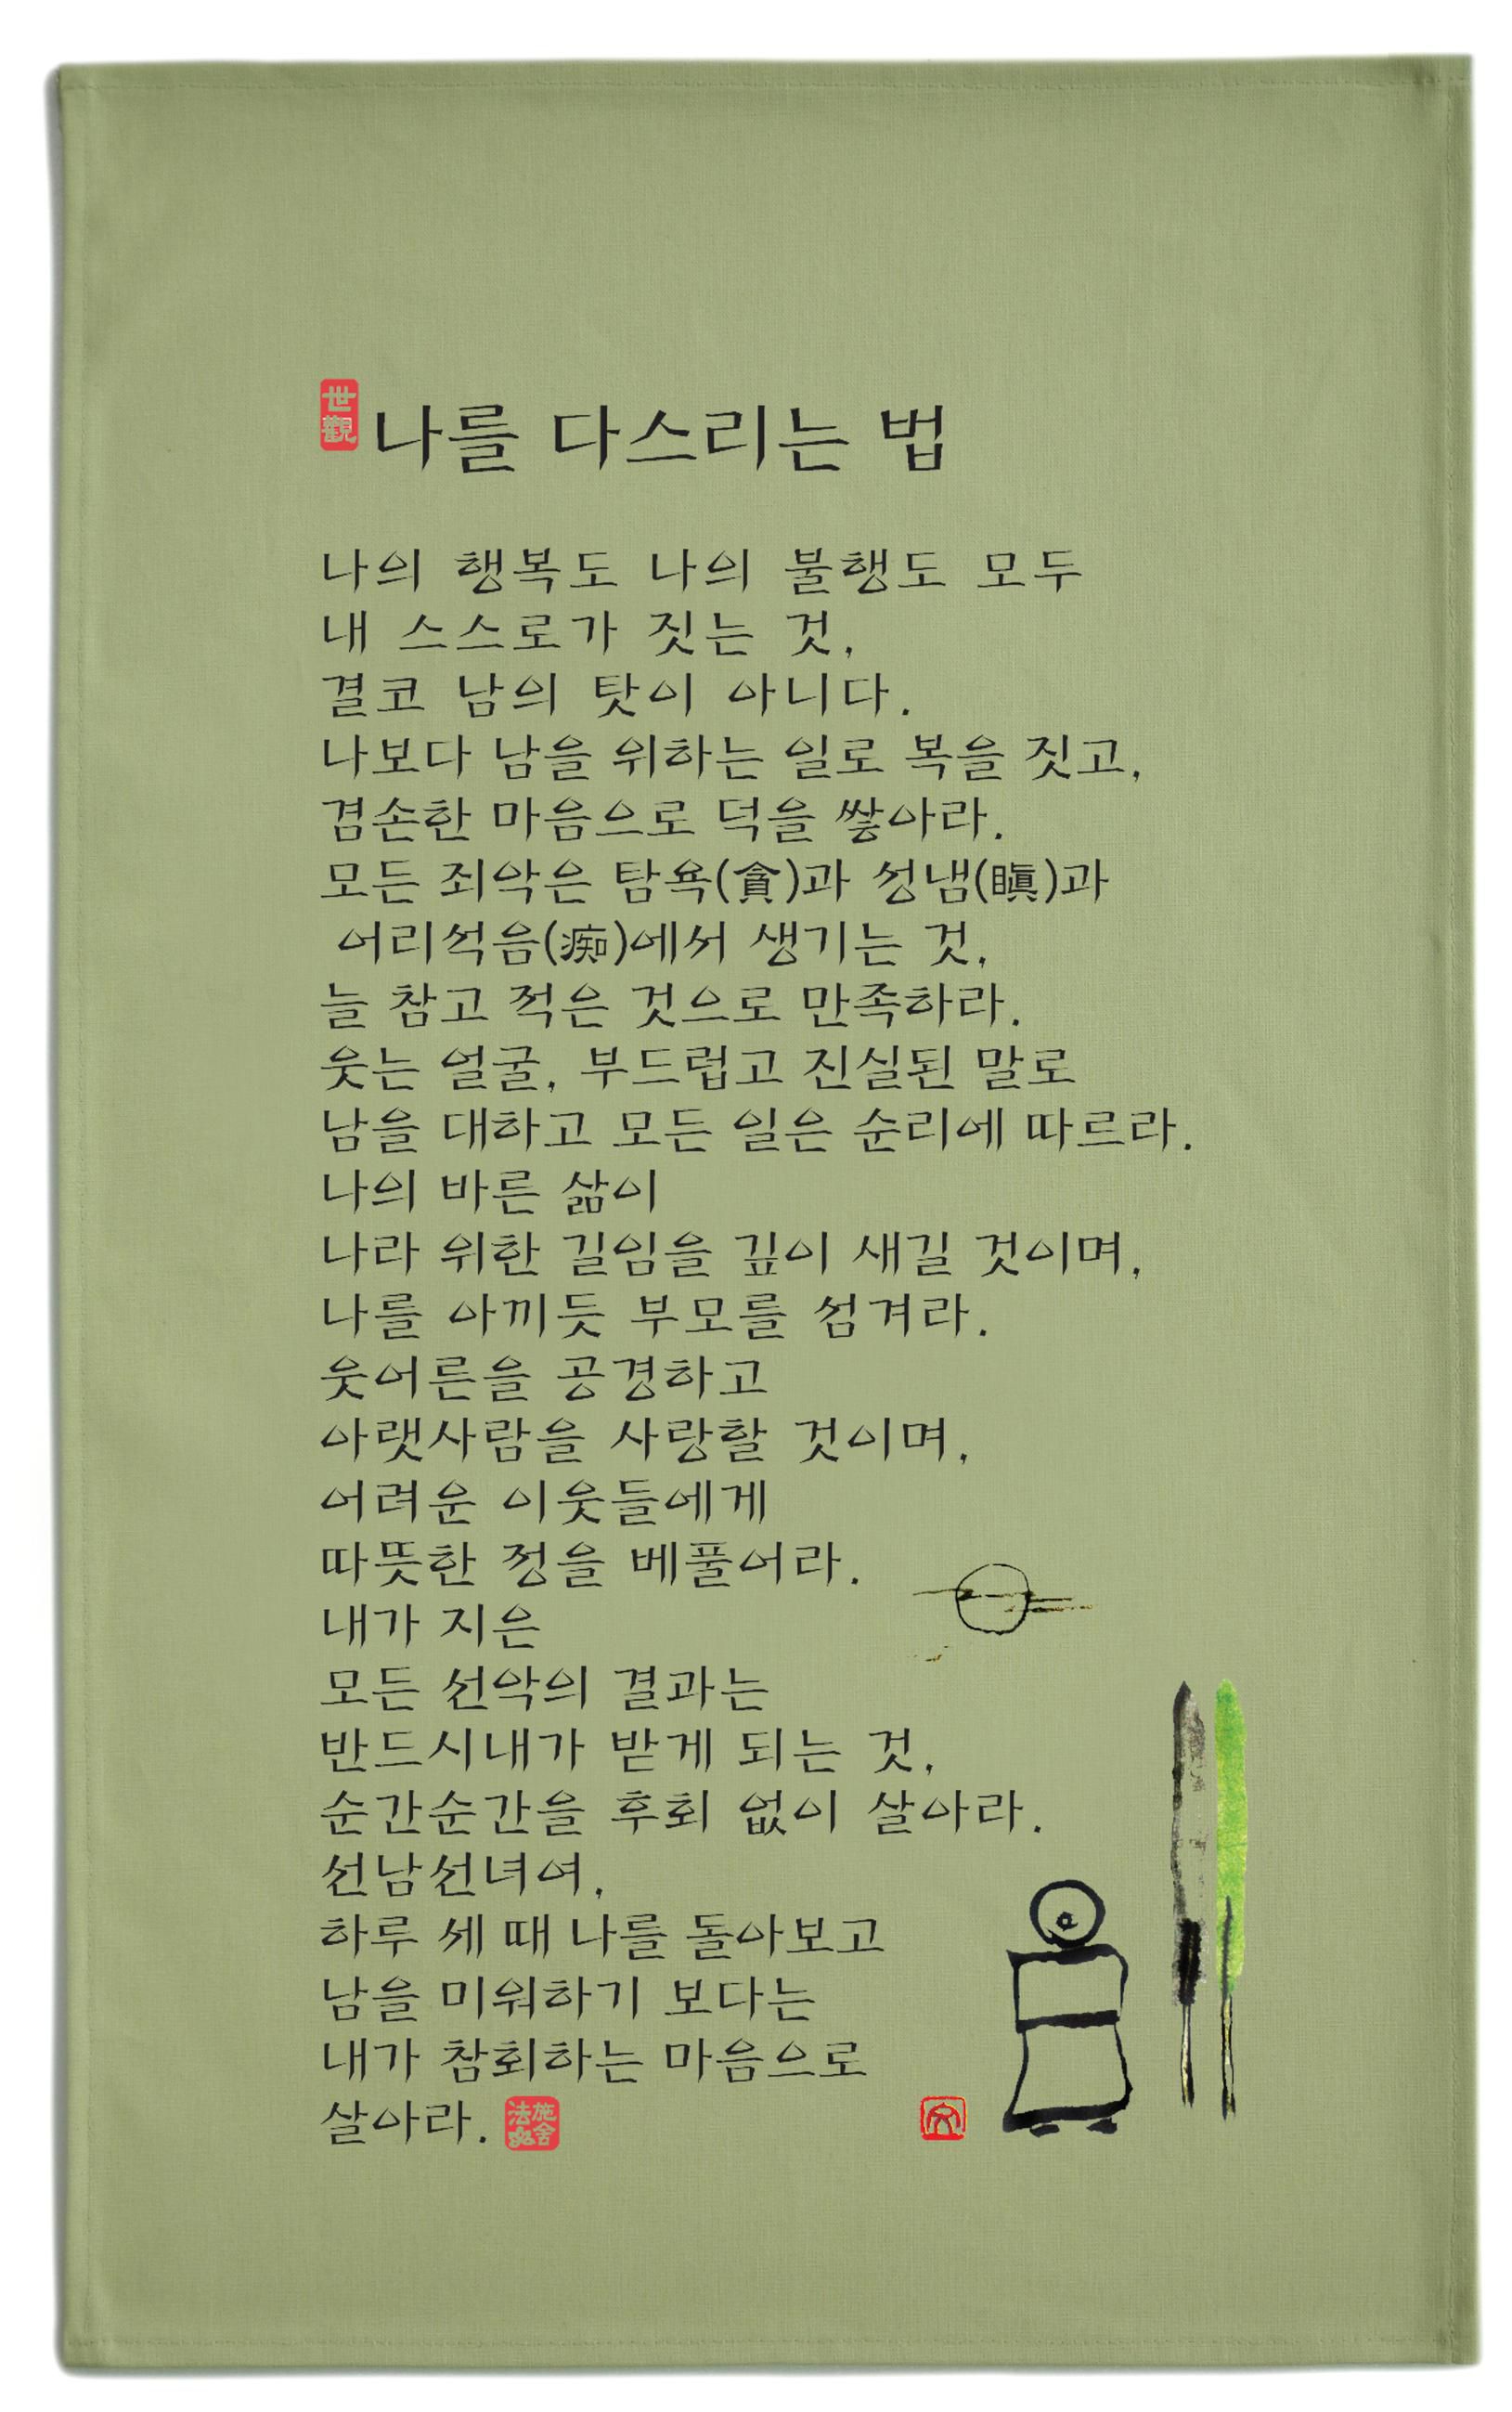 世觀
나를 다스리는 법
나의 행복도 나의 불행도 모두
내 스스로가 짓는 것,
결코 남의 탓이 아니다.
나보다 남을 위하는 일로 복을 짓고,
겸손한 마음으로 덕을 쌓아라.
모든 죄악은 탐욕(貪)과 성냄(瞋)과
어리석음(痴)에서 생기는 것,
늘 참고 적은 것으로 만족하라.
웃는 얼굴, 부드럽고 진실된 말로
남을 대하고 모든 일은 순리에 따르라.
나의 바른 삶이
나라 위한 길임을 깊이 새길 것이며,
나를 아끼듯 부모를 섬겨라.
웃어른을 공경하고
아랫사람을 사랑할 것이며,
어려운 이웃들에게
따뜻한 정을 베풀어라.
내가 지은
모든 선악의 결과는
반드시내가 받게 되는 것,
순간순간을 후회 없이 살아라.
선남선녀여,
하루 세 때 나를 돌아보고
남을 미워하기 보다는
내가 참회하는 마음으로
살아라.